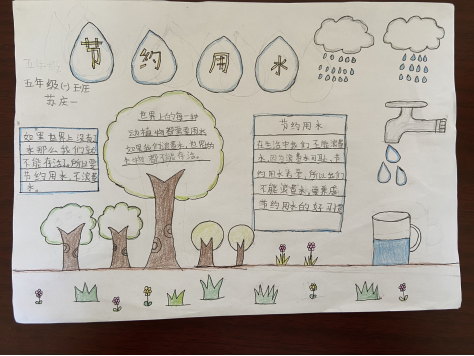 节约用水
五年级(一)班
苏庄一
世界上的每一种
动植物都需要用水
如果我们浪费水,世界的
生物都不能存活。
如果世界上没有
水那么我们就
不能存活。所以要
节约用水,不浪费
水。
节约用水
在生活中我们不能浪费
水,因为浪费水可耻,节
约用水光荣,所以我们
不能浪费水,要养成
节约用水的好习惯